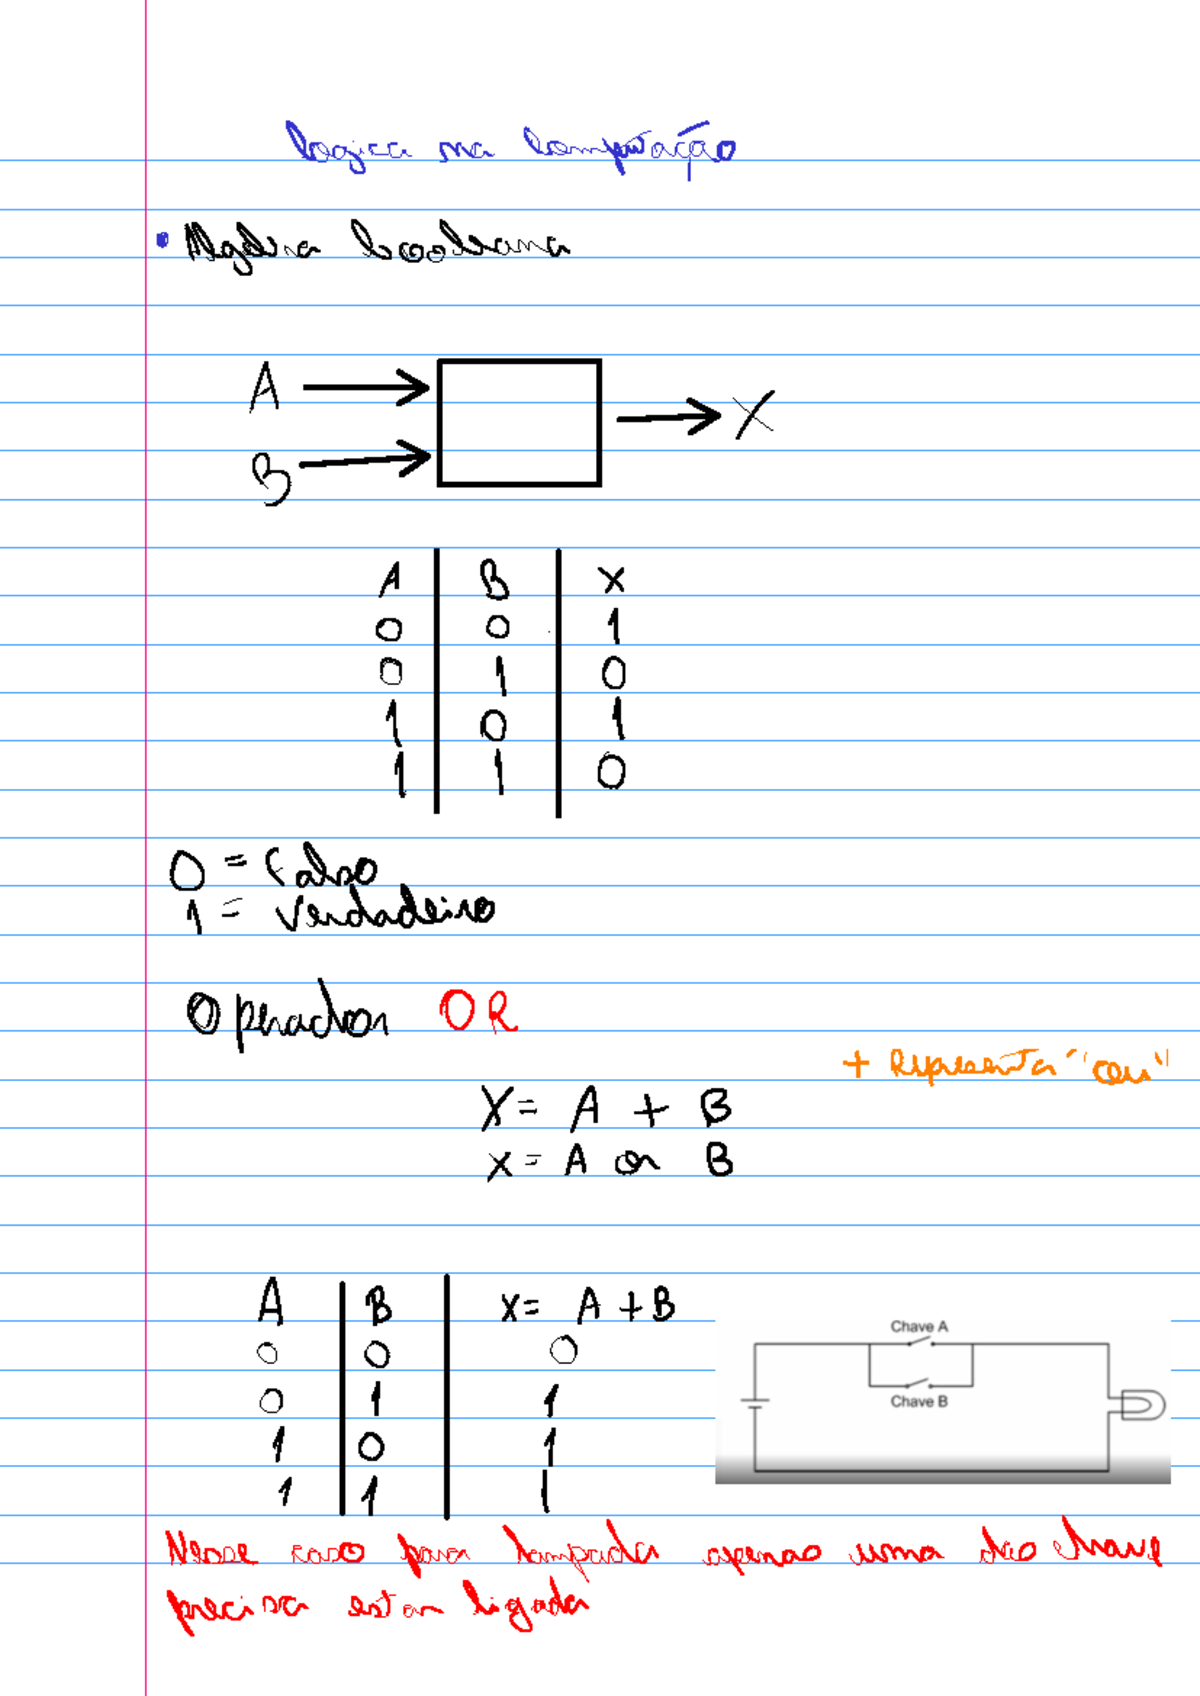 Logica na Computação
• Algebra booleana
A
B
X
A B X
0 0 1
0 1 0
1 0 1
1 1 0
0 = Falso
1 = Verdadeiro
Operador OR
+ Representa "ou"
X = A + B
X = A or B
A B X = A + B
0 0 0
0 1 1
1 0 1
1 1 1
Chave A
Chave B
Nesse caso para lampada apenas uma das chave
precisa estar ligada